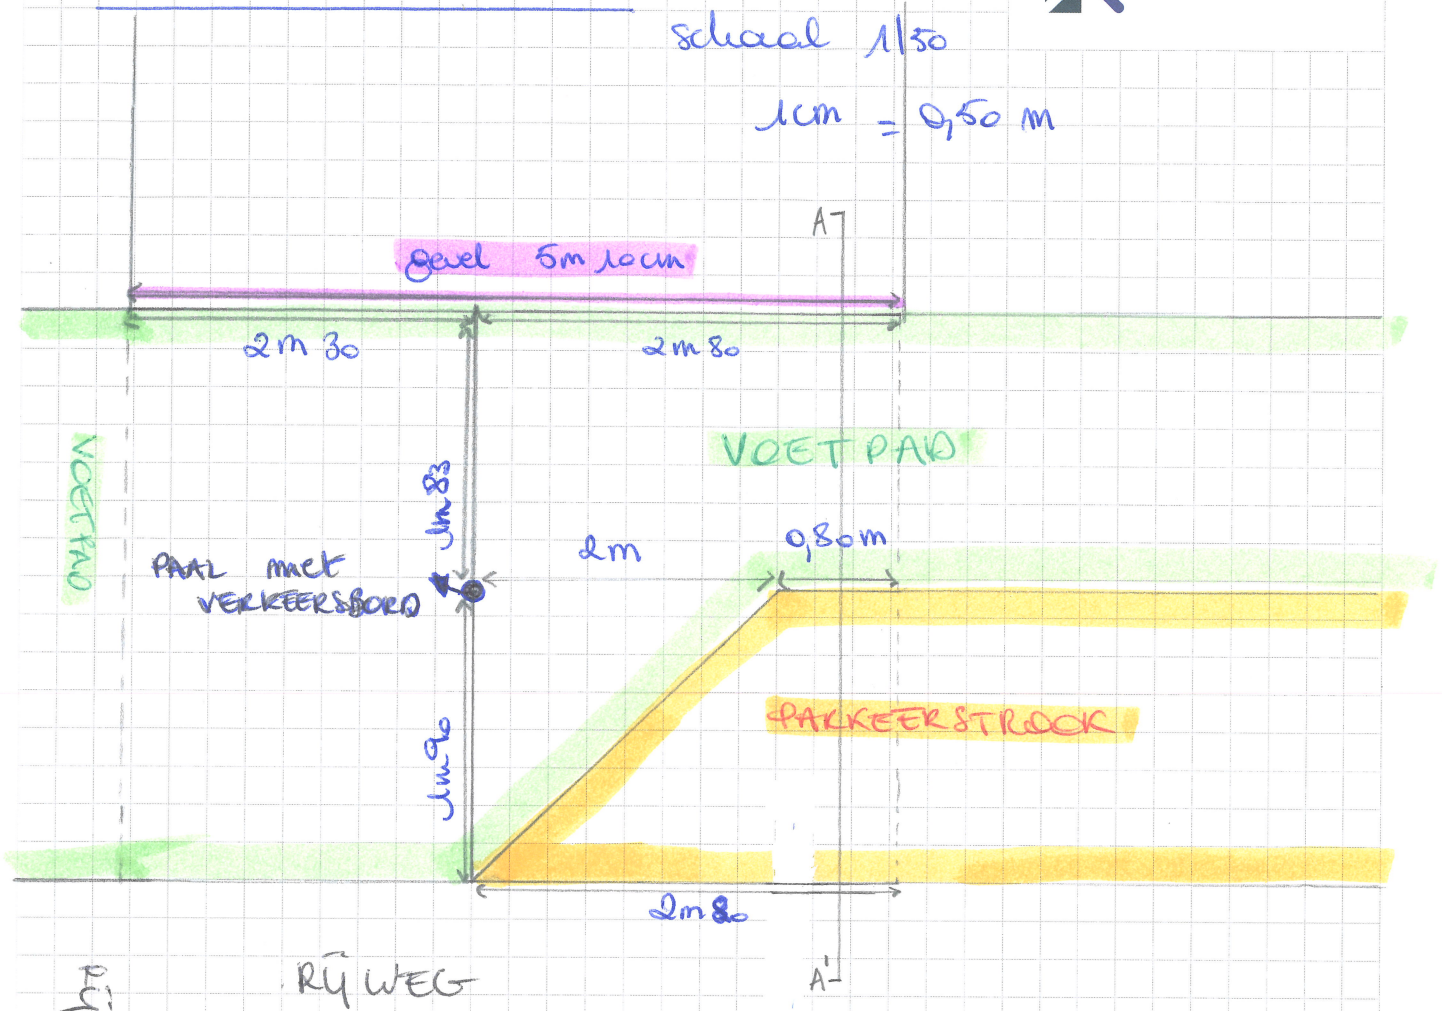 schaal 1/50
1cm = 0,50 m
A
gevel 5m 10cm
2m 30
2m 80
VOETPAD
VOETPAD
1m83
2m
0,80m
PAAL met
VERKEERSBORD
PARKEERSTROOK
1m90
2m80
RIJWEG
A'